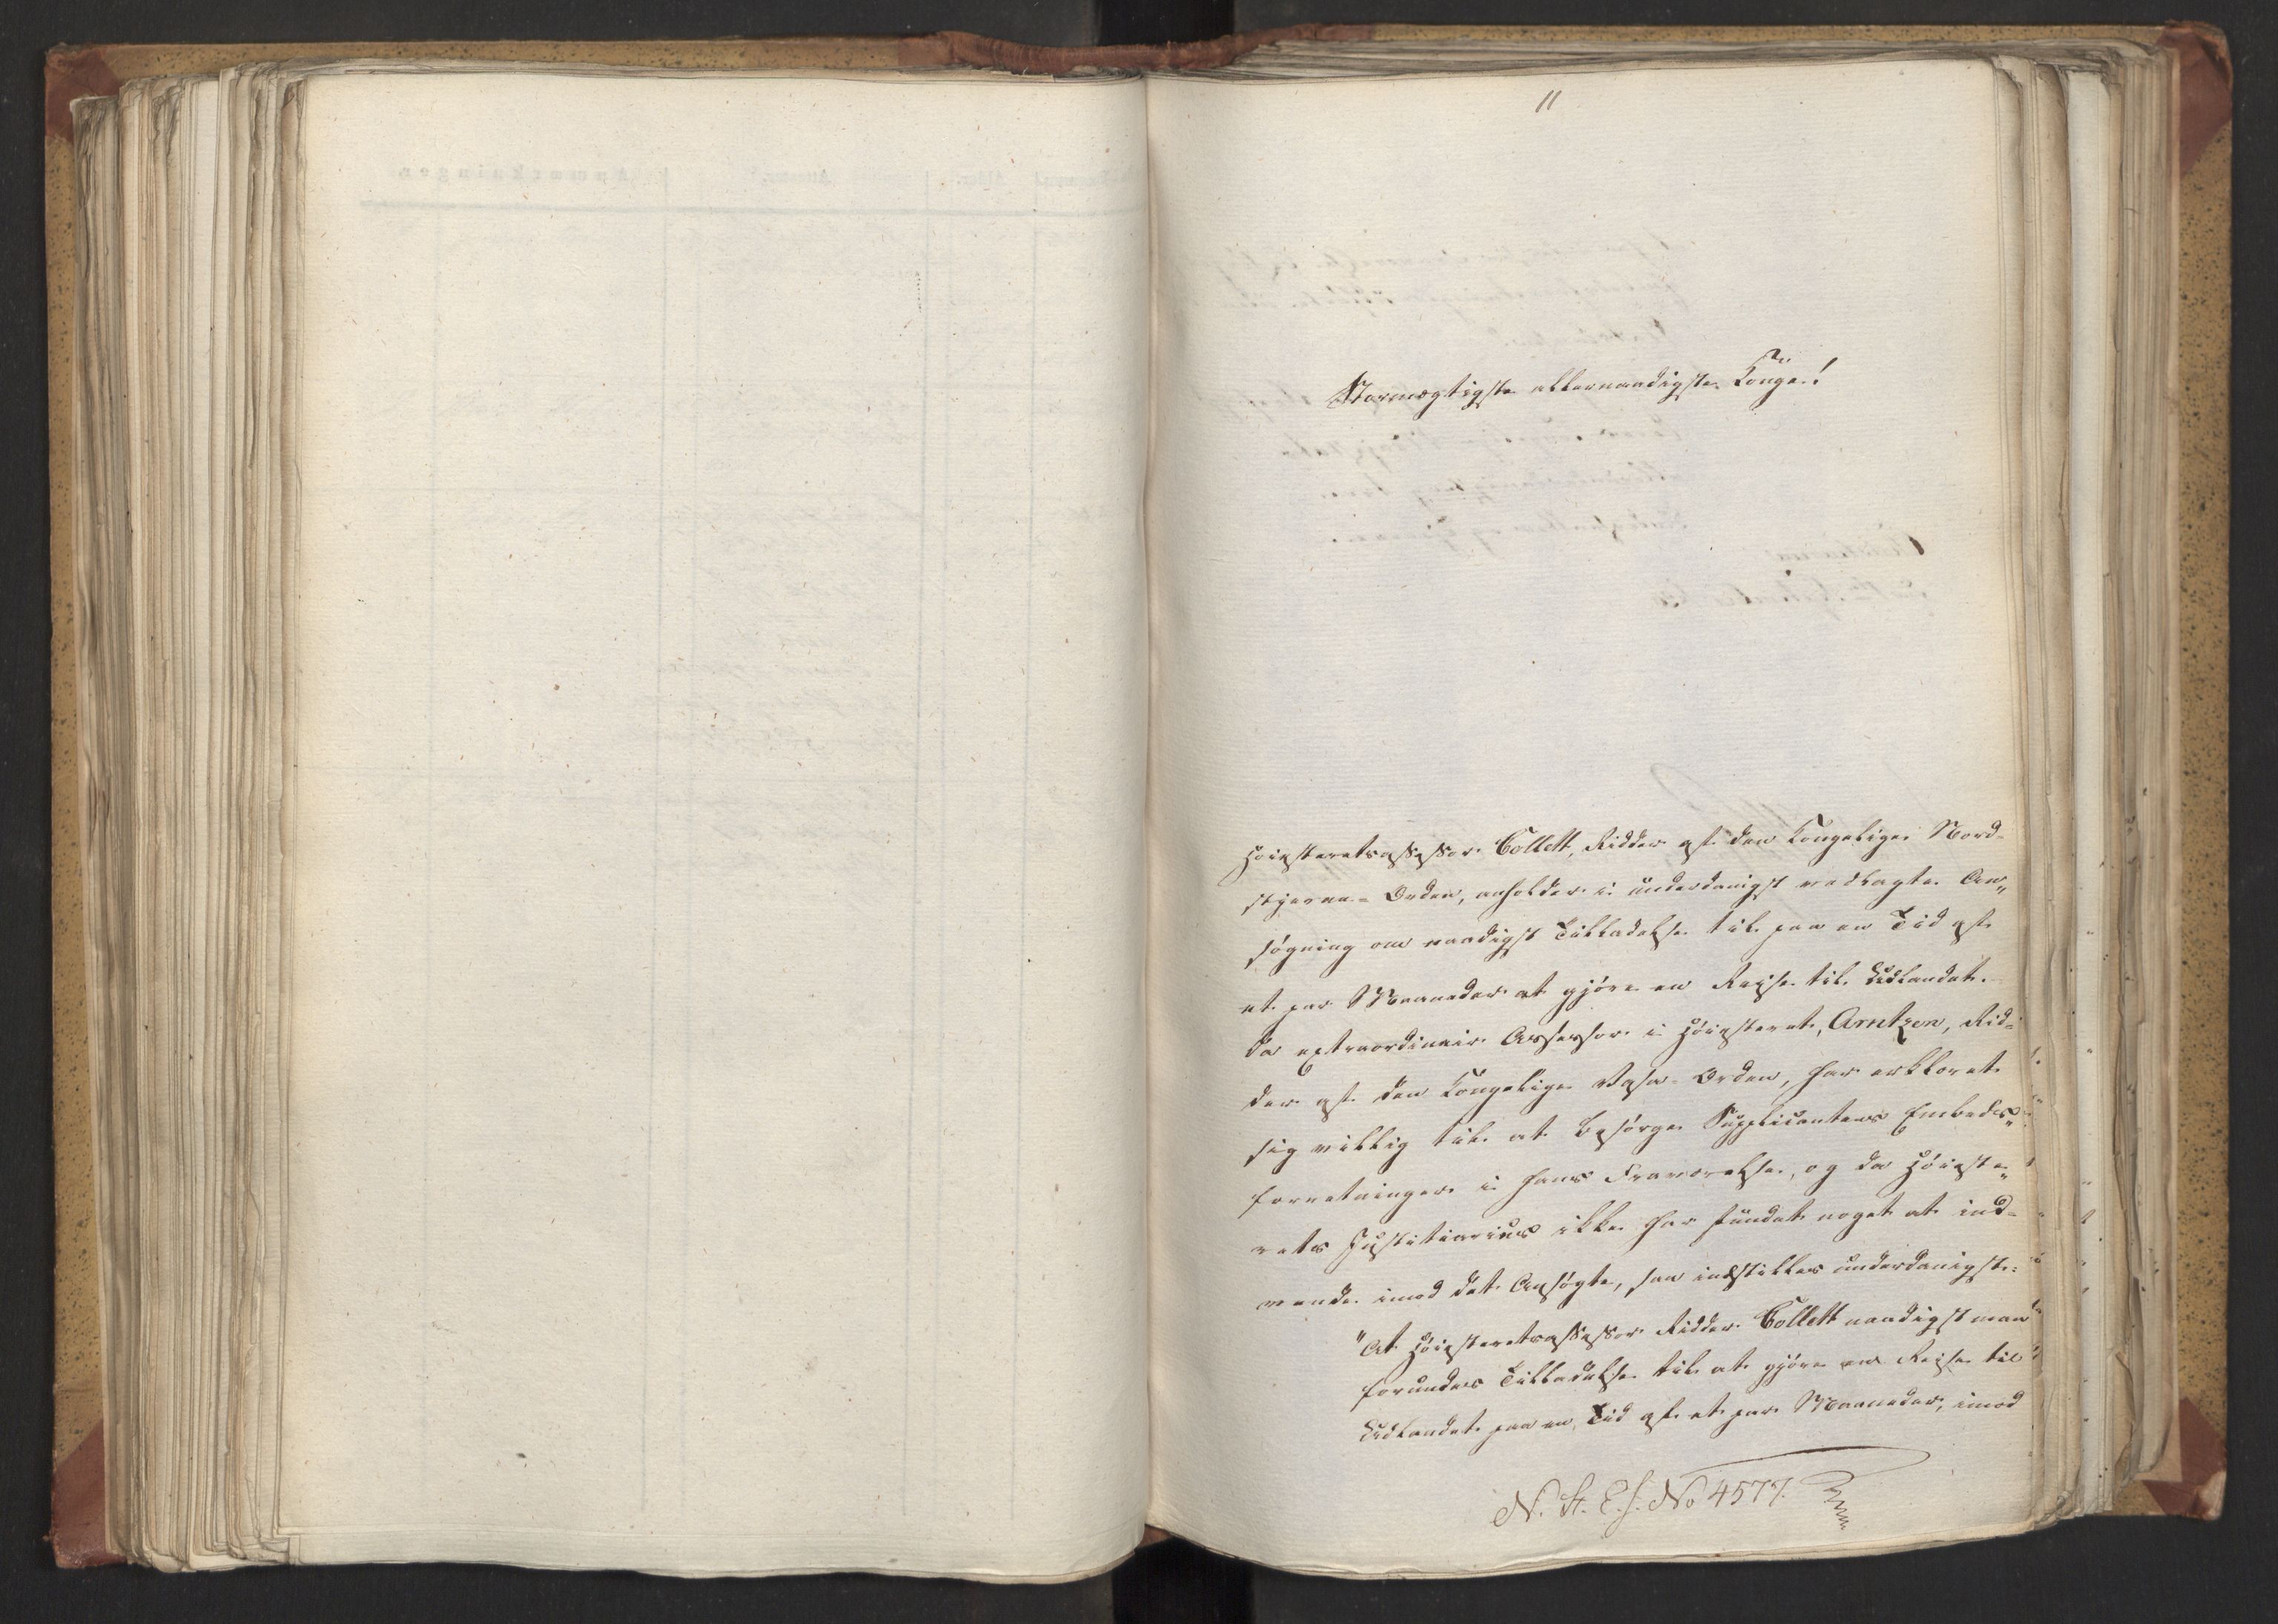 11
Stormægtigste allernaadigste Konge!
Høiesteretsassessor Collett, Ridder af den Kongelige Nord-
stjerne-Orden, anholder i underdanigst vedlagte An„
søgning om naadigst Tilladelse til paa en Tid af
et par Maaneder at gjøre en Reise til Udlandet.
Da extraordinair Assessor i Høiesteret, Arntzen, Rid-
der af den Kongelige Vasa-Orden, har erklæret
sig villig til at besørge Supplicantens Embeds„
forretninger i hans Fraværelse, og da Høieste„
rets Justitiarius ikke har fundet noget at ind-
vende imod det Ansøgte, saa indstilles underdanigst:
"At Høiesteretsassessor Ridder Collett naadigst maa
forundes Tilladelse til at gjøre en Reise til
Udlandet paa en Tid af et par Maaneder, imod
N. St. E. J. No 4577.